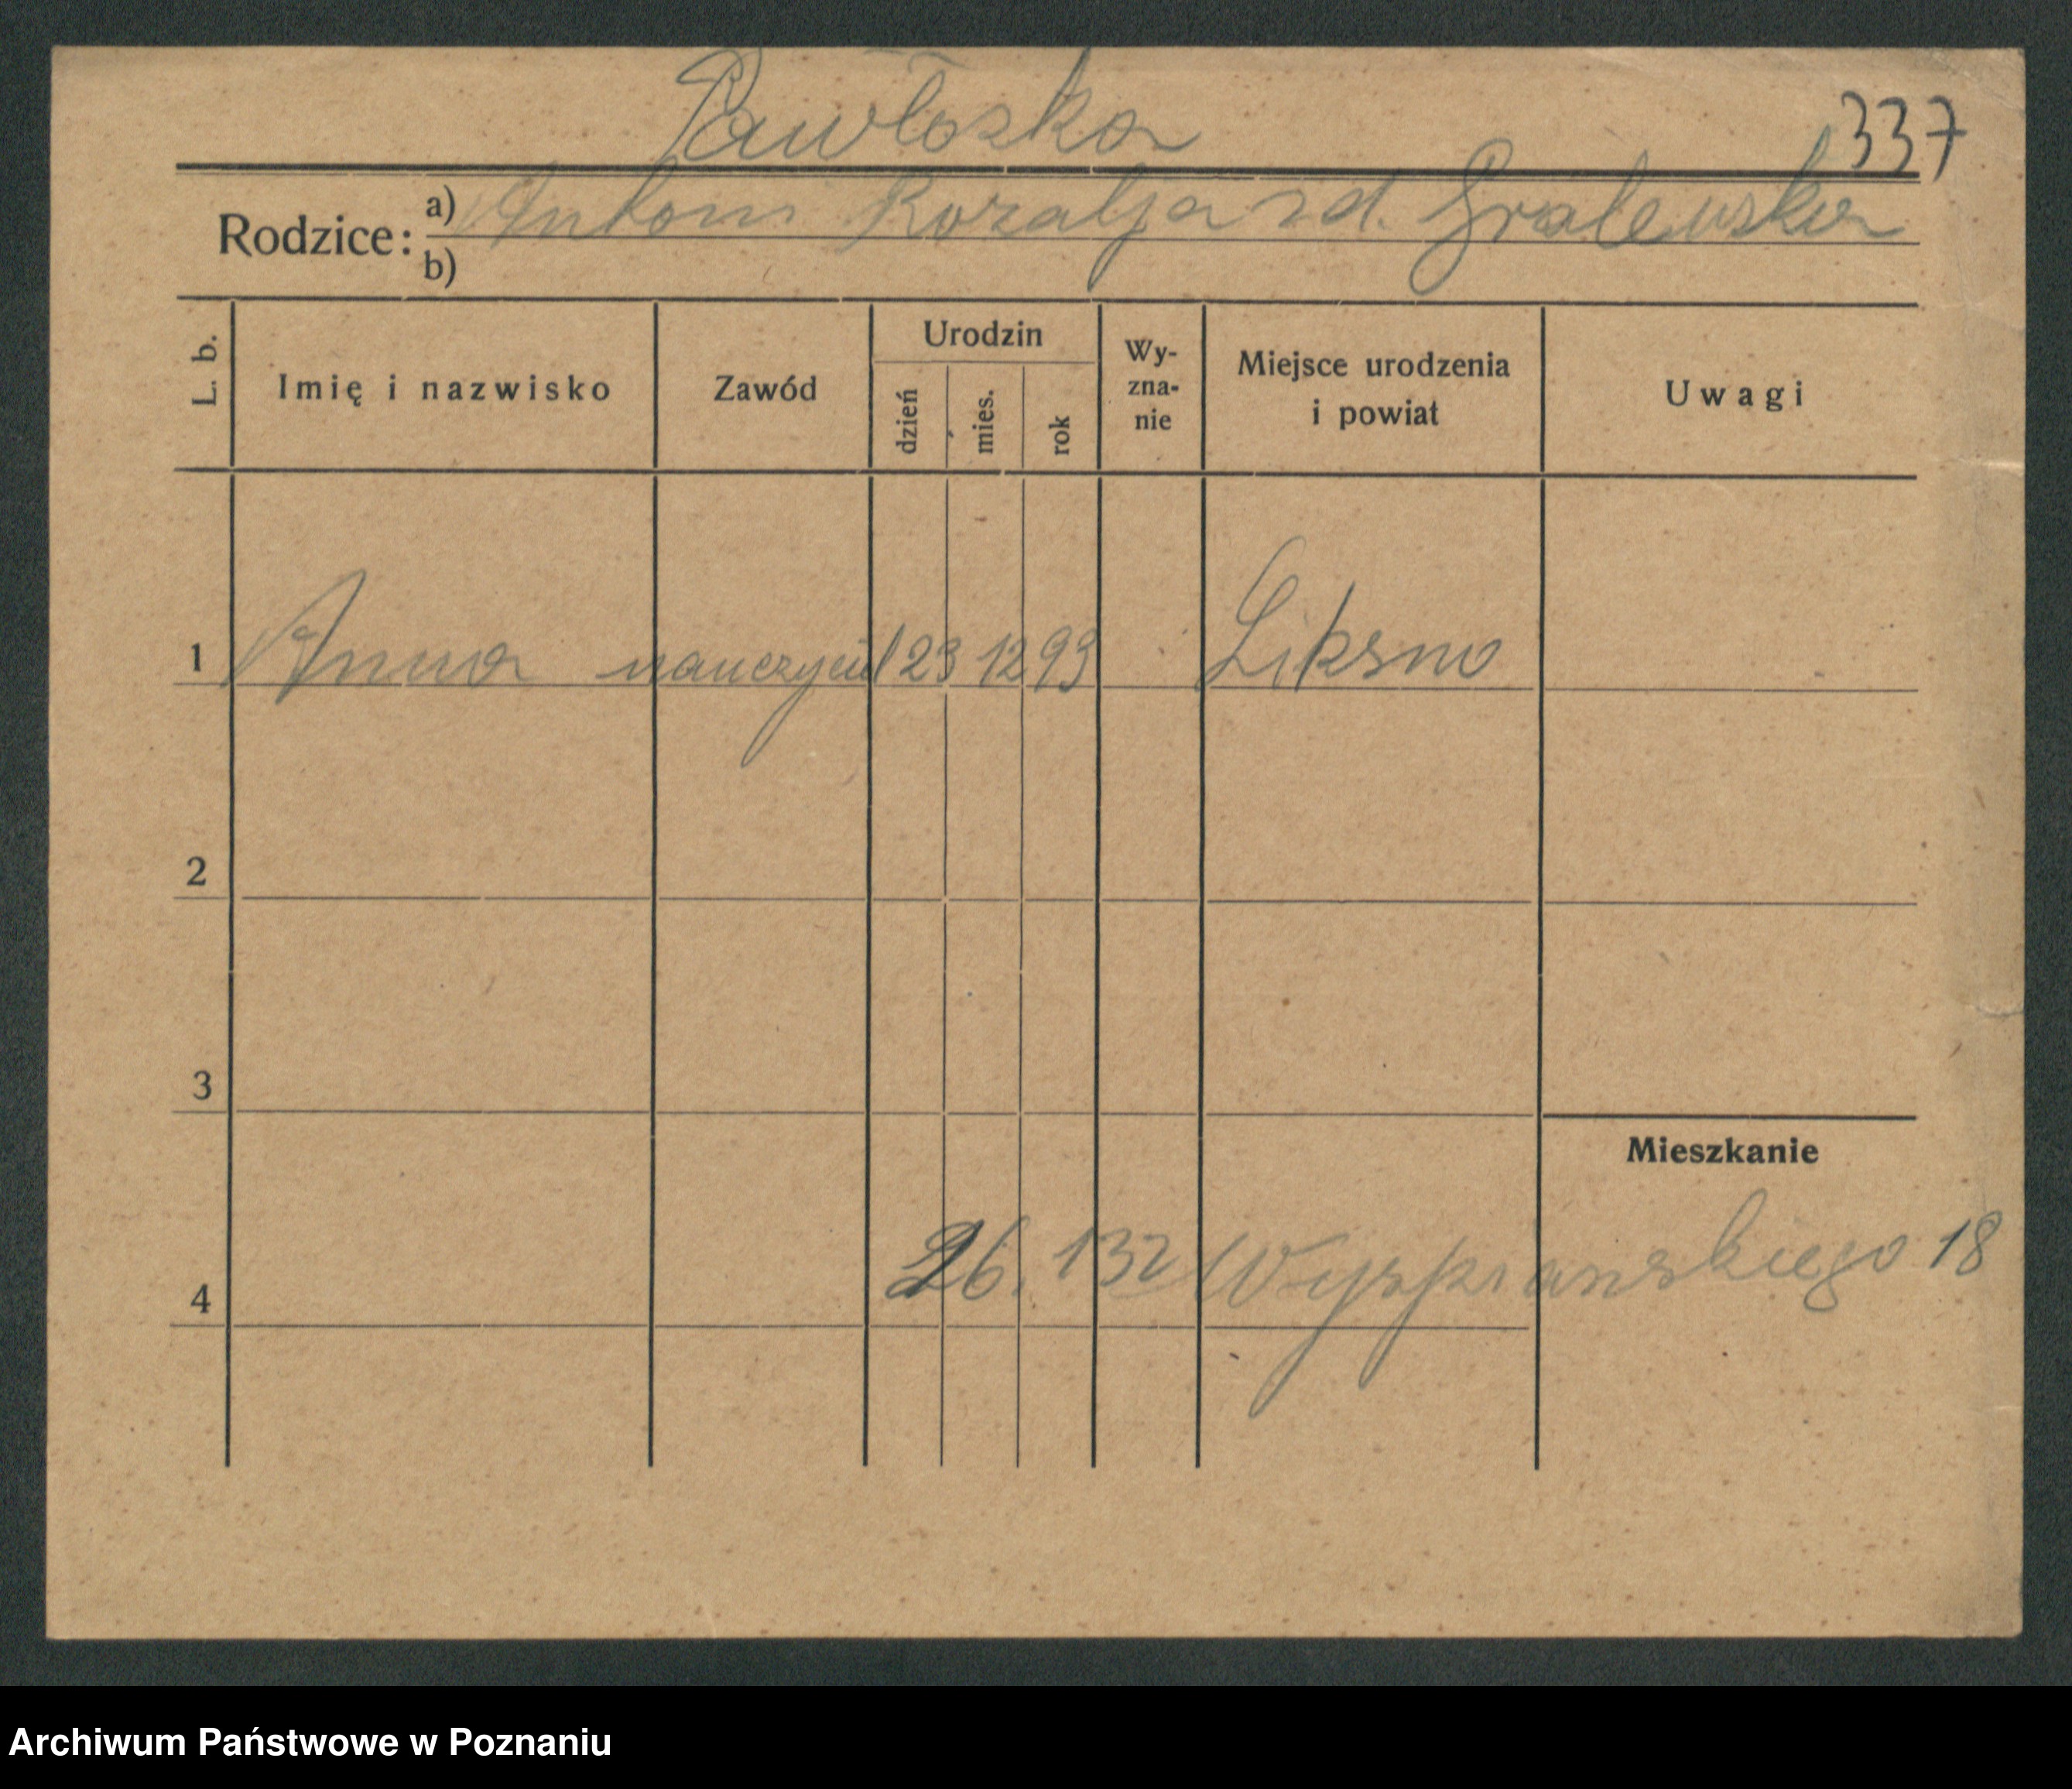 Pawłoska
337
Rodzice: a) Antoni Rozalja zd. Gralewska
b)
L. b. Imię i nazwisko Zawód Urodzin dzień mies. rok Wy-zna-nie Miejsce urodzenia i powiat Uwagi
1 Anna nauczyciel 23 12 93 Liksno
2
3
Mieszkanie
4 26. 132 Wyspianskiego 18
Archiwum Państwowe w Poznaniu